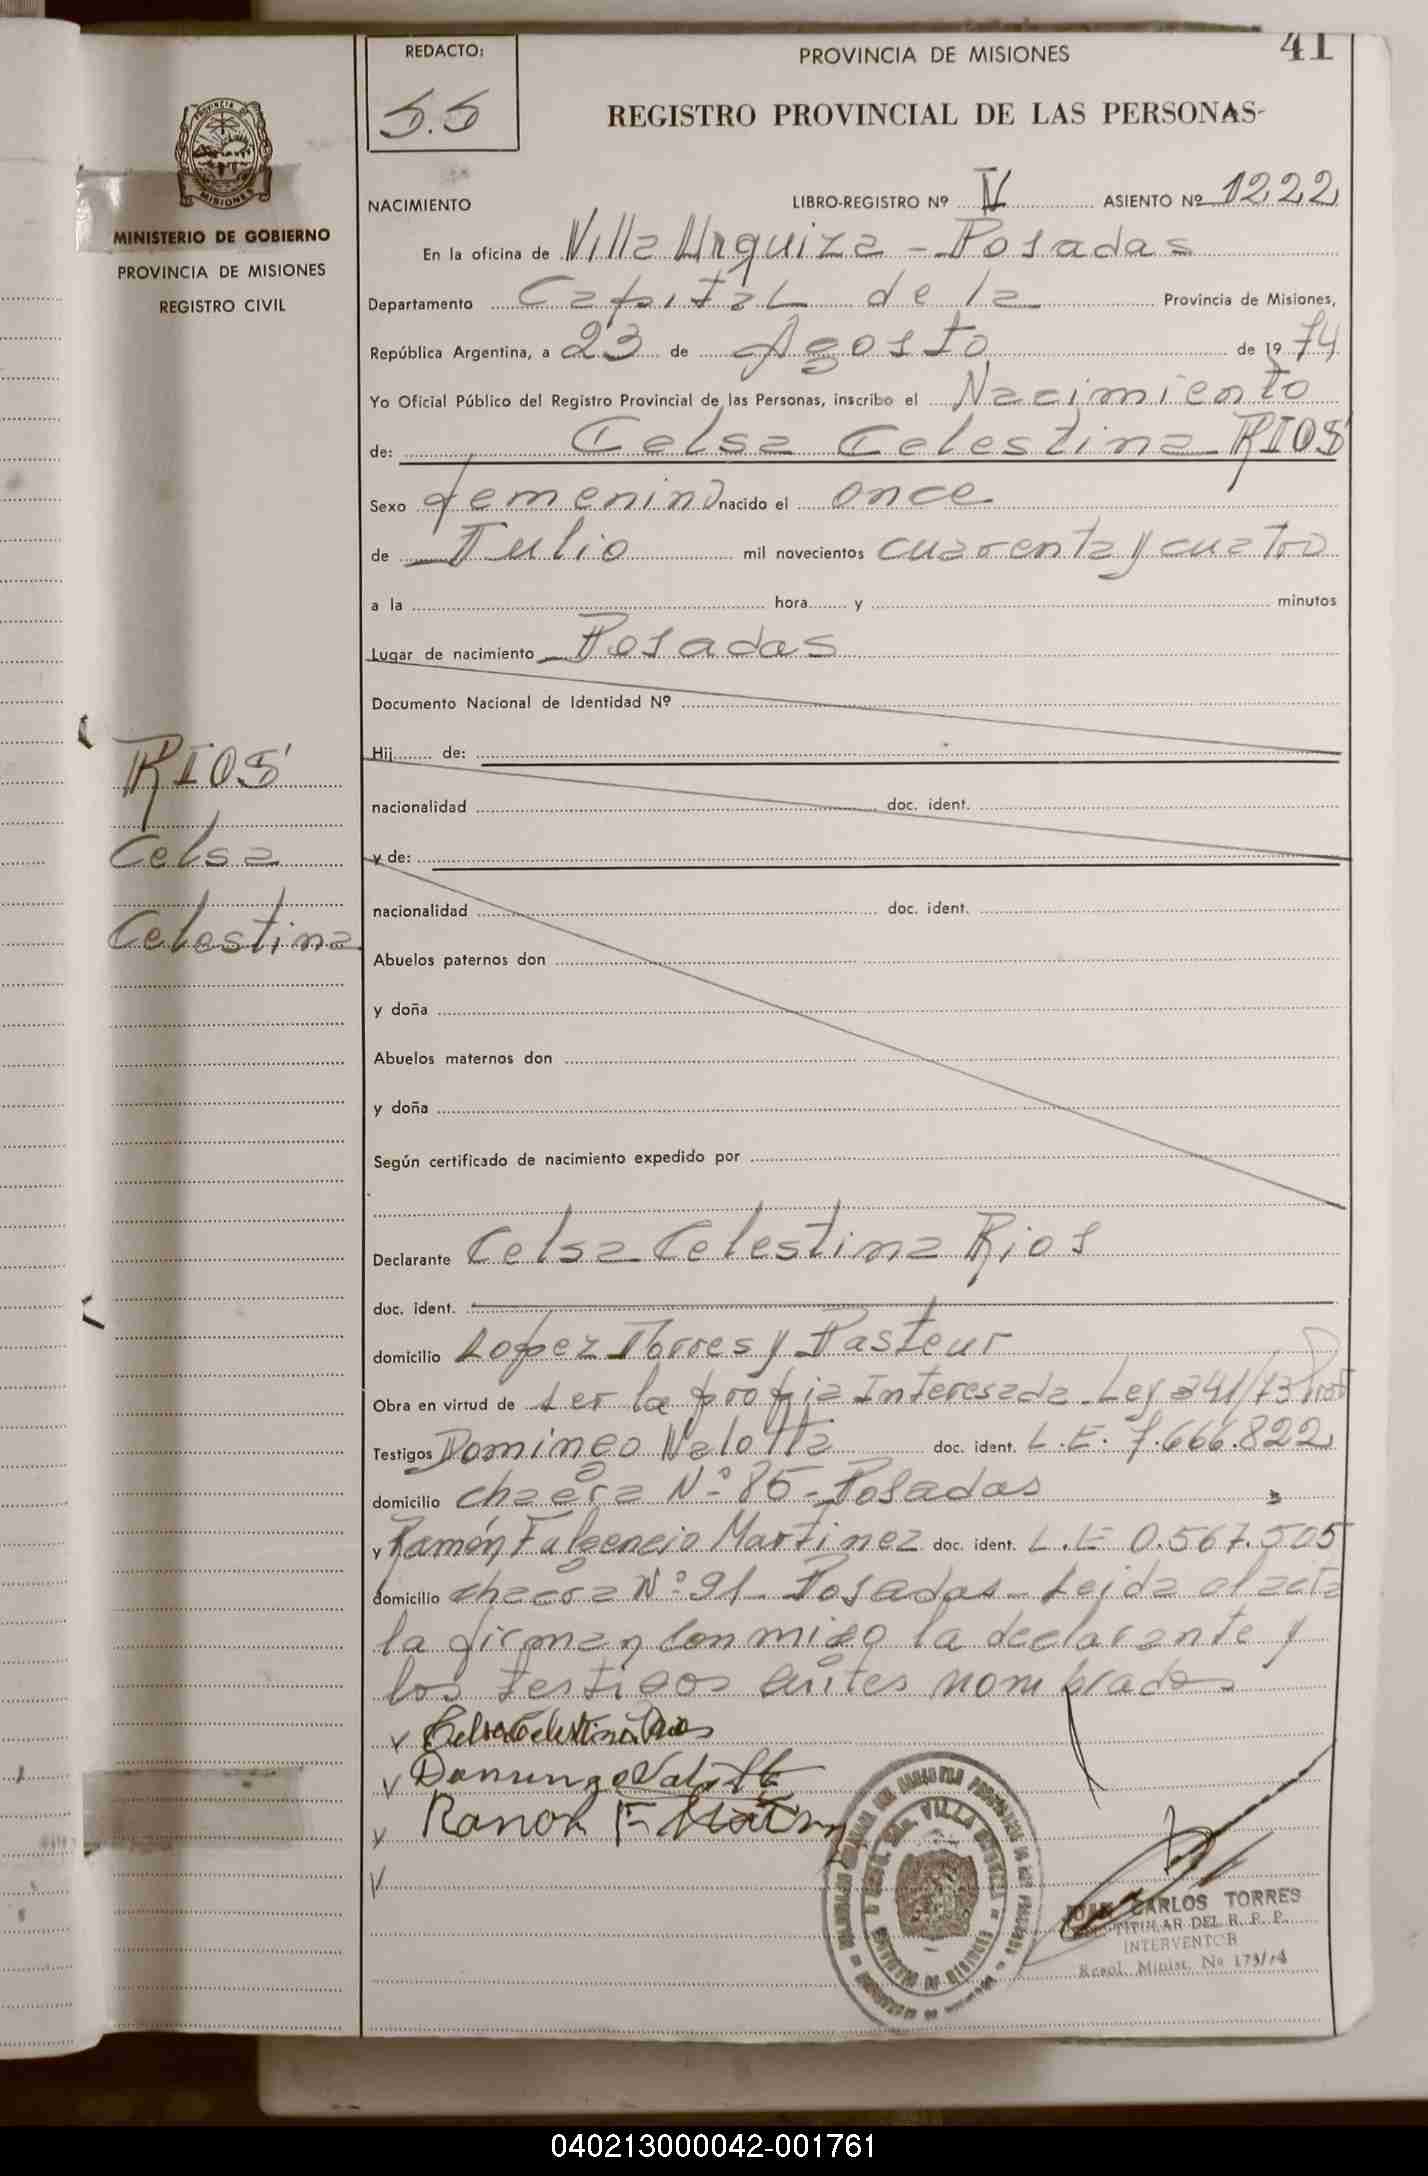 41
REDACTO:
S.S
PROVINCIA DE MISIONES
REGISTRO PROVINCIAL DE LAS PERSONAS
MISIONES
MINISTERIO DE GOBIERNO
PROVINCIA DE MISIONES
REGISTRO CIVIL
NACIMIENTO LIBRO-REGISTRO Nº IV ASIENTO Nº 1222
En la oficina de Villa Urquiza - Posadas
Departamento Capital de la Provincia de Misiones,
República Argentina, a 23 de Agosto de 1974
Yo Oficial Público del Registro Provincial de las Personas, inscribo el Nacimiento
de: Celsa Celestina RIOS
Sexo femenino nacido el once
de Julio mil novecientos cuarenta y cuatro
a la hora y minutos
Lugar de nacimiento Posadas
Documento Nacional de Identidad Nº
Hij de:
nacionalidad doc. ident.
y de:
nacionalidad doc. ident.
Abuelos paternos don
y doña
Abuelos maternos don
y doña
Según certificado de nacimiento expedido por
RIOS
Celsa
Celestina
Declarante Celsa Celestina Rios
doc. ident.
domicilio Lopez Torres y Pasteur
Obra en virtud de ser la propia Interesada Ley 341/73
Testigos Domingo Valotta doc. ident. L.E. 7.666.822
domicilio chacra Nº 85 - Posadas
y Ramón Fulgencio Martinez doc. ident. L.E 0.567.505
domicilio chacra Nº 91 - Posadas - Leida el acta
la firman conmigo la declarante y
los testigos antes nombrados
Celsa Celestina Rios
Domingo Valotta
Ramon F Martin
JUAN CARLOS TORRES
TITULAR DEL R. P. P.
INTERVENTOR
Resol. Minist. Nº 173/74
040213000042-001761